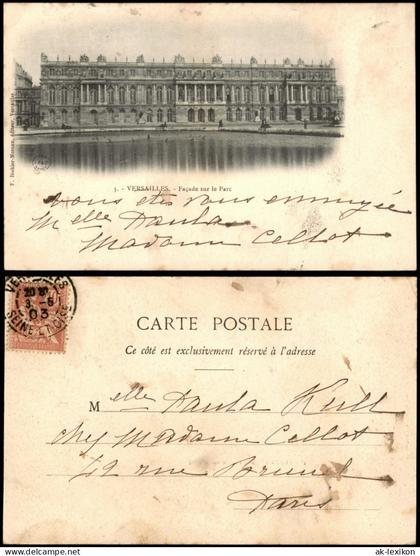 F. Barbier-Moreau, éditeur, Versailles
3. - VERSAILLES. - Façade sur le Parc
vous êtes vous ennuyée
Melle Paula
Madame Cellot
VERSAILLES
03
SEINE ET OISE
CARTE POSTALE
Ce côté est exclusivement réservé à l'adresse
Melle Paula Kull
chez Madame Cellot
42 rue Brunel
Paris
© ak-lexikon
ak-lexikon.de